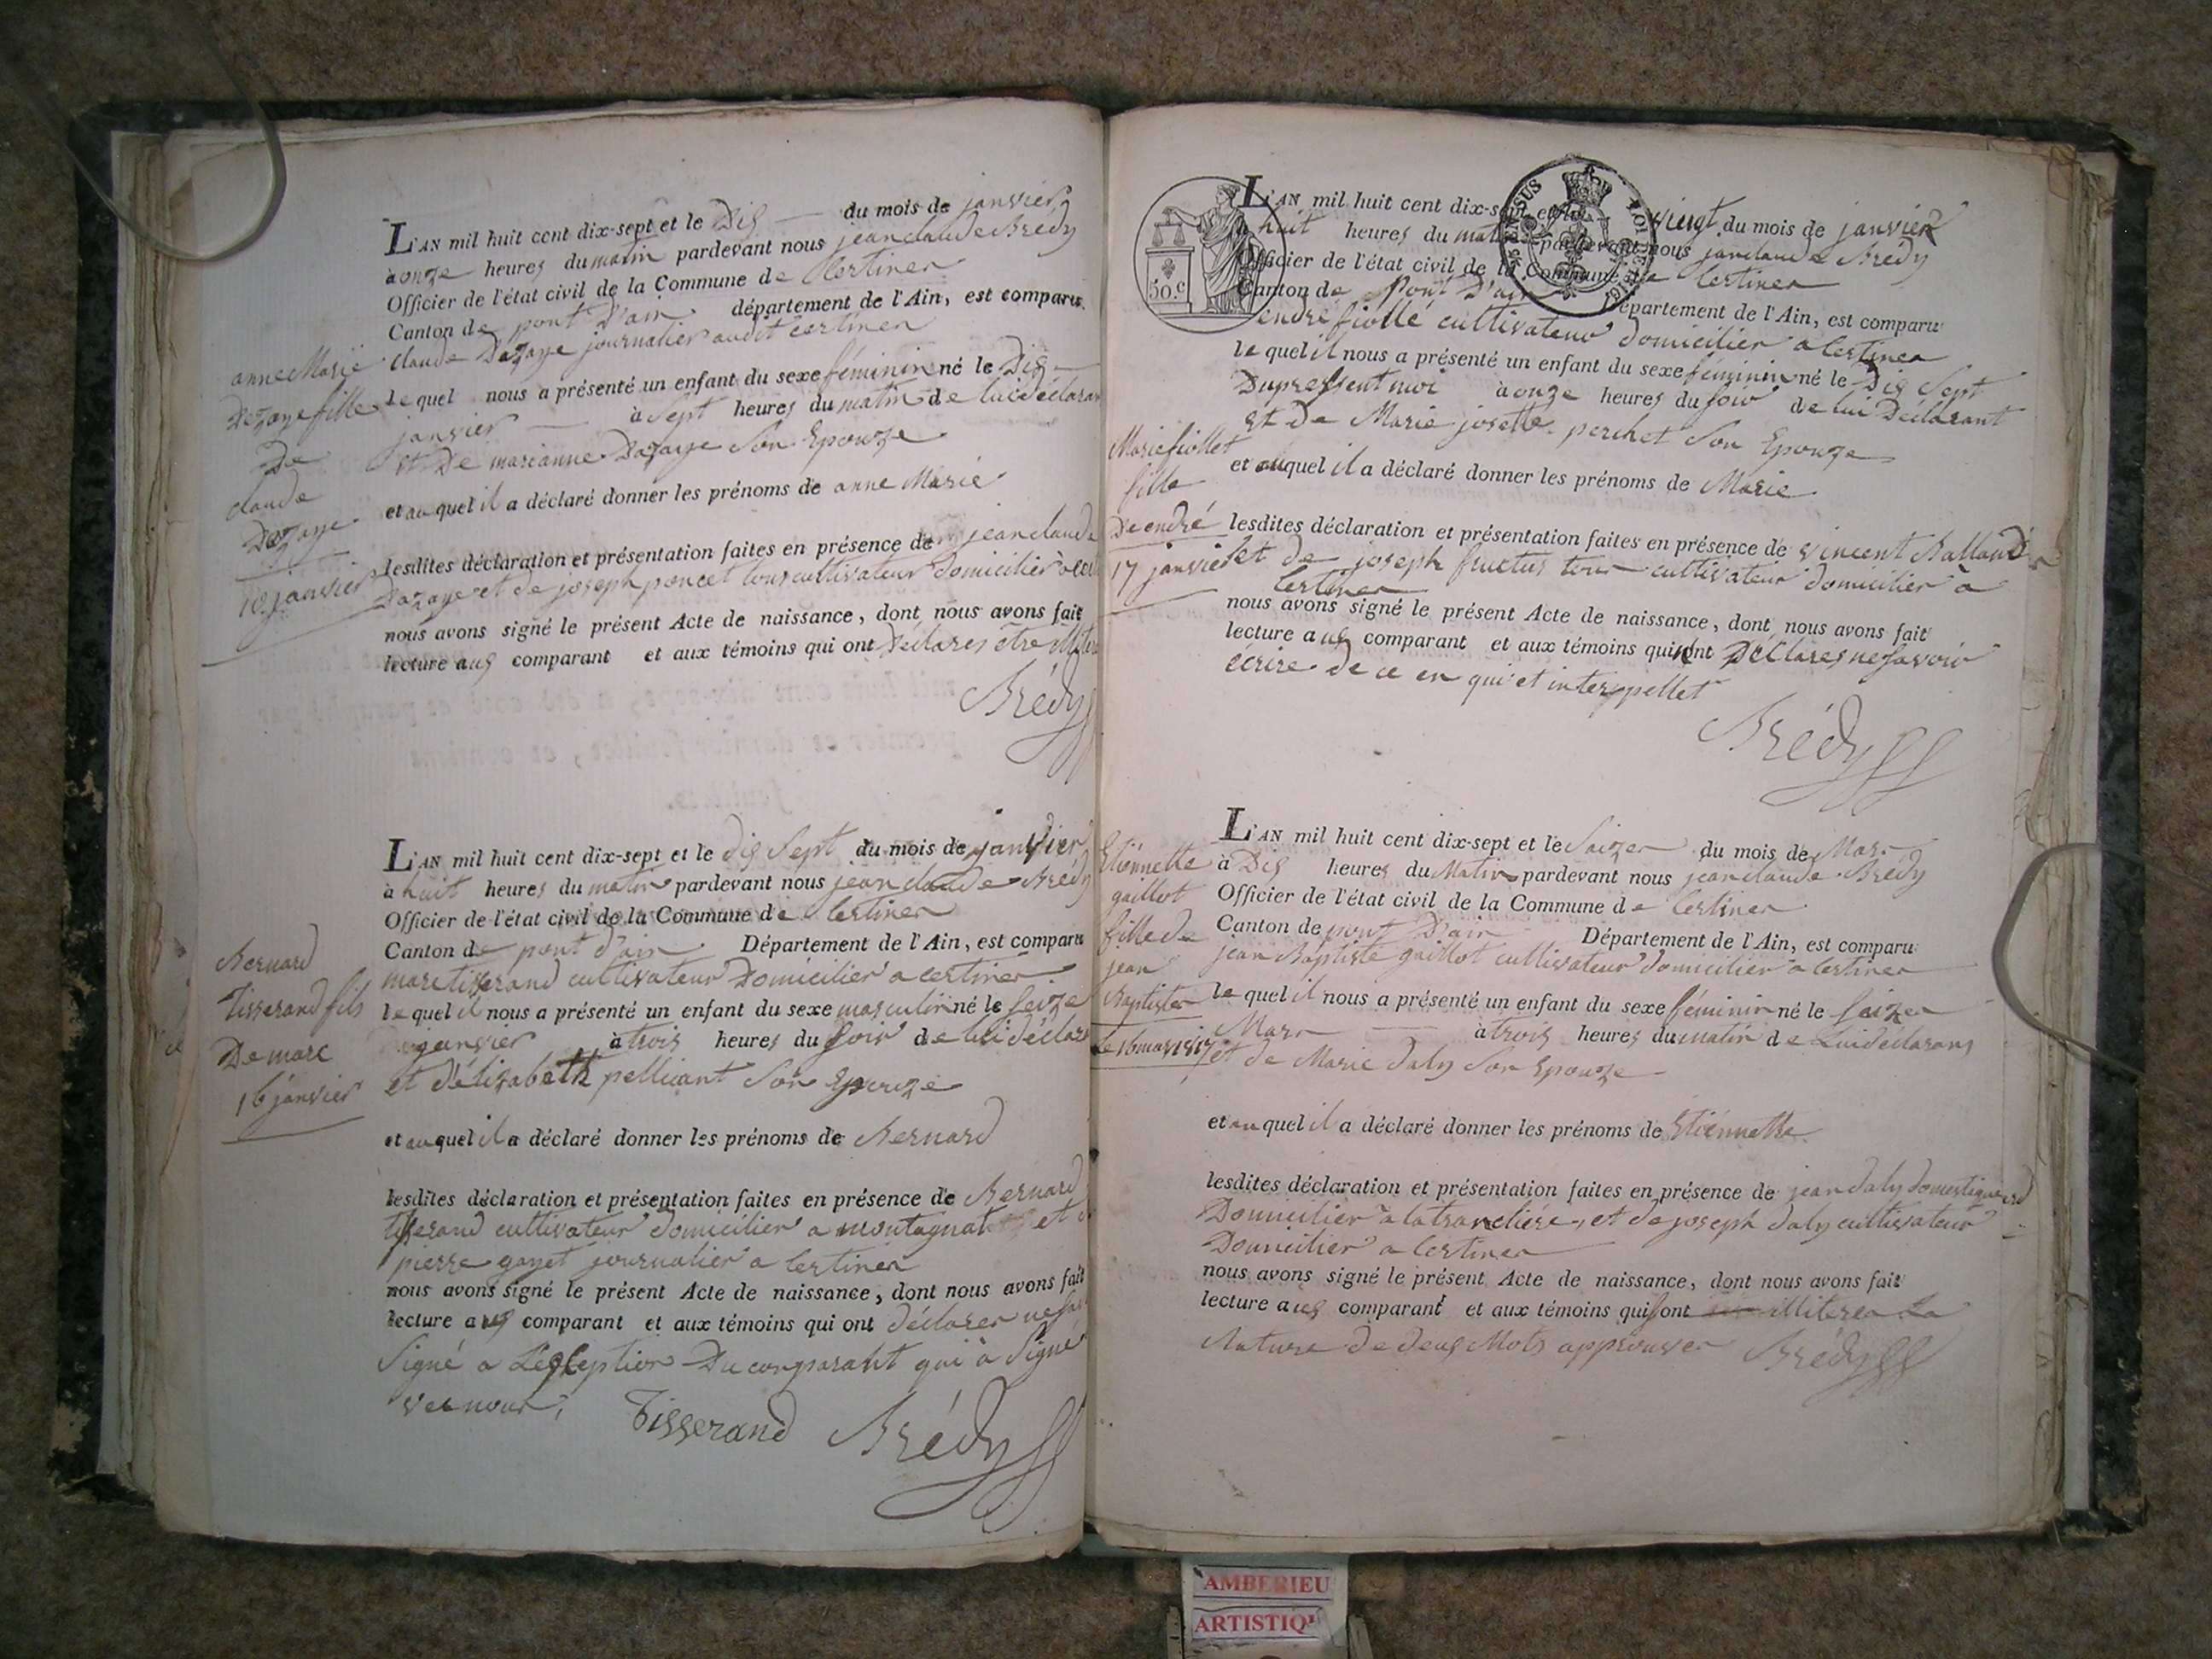 L'AN mil huit cent dix-sept et le Dix du mois de janvier
à onze heures du matin pardevant nous jean claude Brédy
Officier de l'état civil de la Commune de Certines
Canton de pont d'ain département de l'Ain, est comparu
claude Dazaye journalier audit certines
lequel nous a présenté un enfant du sexe féminin né le Dix
janvier à sept heures du matin de lui déclarant
et De marianne Dazaye Son Epouze
et auquel il a déclaré donner les prénoms de anne Marie
lesdites déclaration et présentation faites en présence de jean claude
Dazaye et de joseph poncet tous cultivateur domicilier à
nous avons signé le présent Acte de naissance, dont nous avons fait
lecture aux comparant et aux témoins qui ont Déclarés être
Brédy
anne Marie
Dazaye fille
De
claude
Dazaye
10 janvier
L'AN mil huit cent dix-sept et le dix Sept du mois de janvier
à huit heures du matin pardevant nous jean claude Brédy
Officier de l'état civil de la Commune de Certines
Canton de pont d'ain Département de l'Ain, est comparu
marc tisserand cultivateur Domicilier a certines
lequel il nous a présenté un enfant du sexe masculin né le Seize
janvier à trois heures du Soir de lui
et d'élizabeth pellicant Son Epouze
et auquel il a déclaré donner les prénoms de Bernard
lesdites déclaration et présentation faites en présence de Bernard
tisserand cultivateur domicilier a montagnat et
pierre gayet journalier a Certines
nous avons signé le présent Acte de naissance, dont nous avons fait
lecture aux comparant et aux témoins qui ont déclarer
Signé a Lexception Du comparant qui à Signé
vec nous,
Tisserand Brédy
Bernard
Tisserand fils
De marc
16 janvier
50.c
L'AN mil huit cent dix-sept et le vingt du mois de janvier
huit heures du matin pardevant nous jean claude Brédy
Officier de l'état civil de la Commune de Certines
Canton de Pont D'ain Département de l'Ain, est comparu
endré fiollé cultivateur domicilier a Certines
lequel il nous a présenté un enfant du sexe féminin né le Dix Sept
Dupressent moi à onze heures du Soir de lui Déclarant
Et De Marie josette perchet Son Epouze
et auquel il a déclaré donner les prénoms de Marie
lesdites déclaration et présentation faites en présence de vincent Balland
et de joseph fructus tous cultivateur domicilier à
Certines
nous avons signé le présent Acte de naissance, dont nous avons fait
lecture aux comparant et aux témoins qui ont Déclares ne Savoir
écrire de ce en qui et interppellet
Brédy
Marie fiollet
fille
De endré
17 janvier
L'AN mil huit cent dix-sept et le Saizes du mois de Mars
à Dix heures du Matin pardevant nous jean claude Brédy
Officier de l'état civil de la Commune de Certines
Canton de pont D'ain Département de l'Ain, est comparu
jean Baptiste gaillot cultivateur domicilier a Certines
lequel il nous a présenté un enfant du sexe féminin né le Saizes
Mars à trois heures du matin de Lui déclarans
et de Marie Daly Son Epouze
et auquel il a déclaré donner les prénoms de Etiénnette
lesdites déclaration et présentation faites en présence de jean daly domestique
Domicilier à la tranclière, et de joseph daly cultivateur
Domicilier a Certines
nous avons signé le présent Acte de naissance, dont nous avons fait
lecture aux comparant et aux témoins qui sont illiteres La
Rature de deux Mots approuver Brédy
Etiénnette
gaillot
fille de
jean
Baptiste
le 16 mars 1817
AMBERIEU
ARTISTIQ